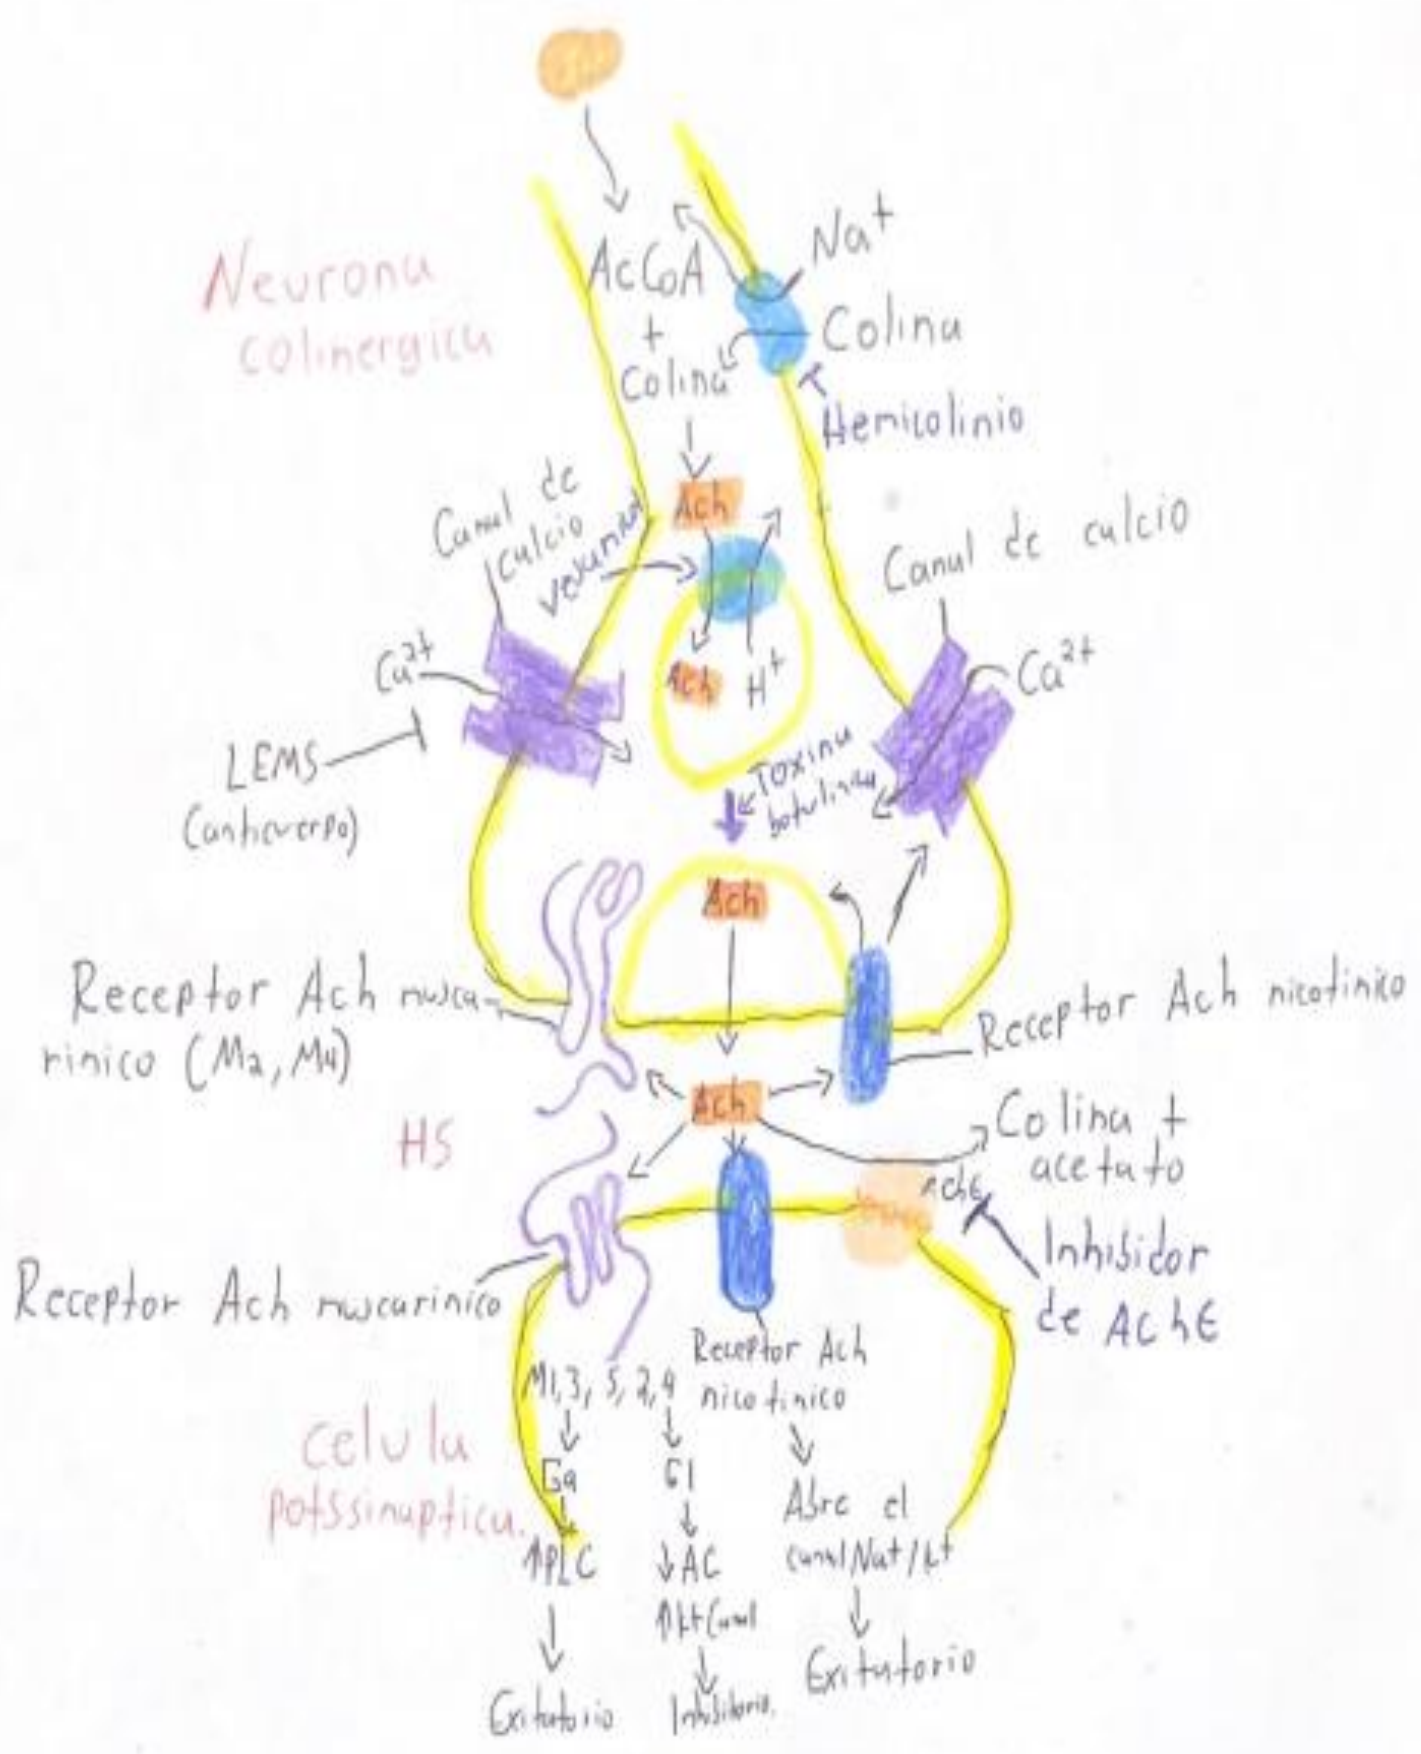 Neurona
colinergica
AcCoA
+
Colina
Na+
Colina
Hemicolinio
Ach
Canal de
calcio
Vesamicol
Canal de calcio
Ca2+
Ach
H+
Ca2+
LEMS
(anticuerpo)
Toxina
botulinica
Ach
Receptor Ach musca-
rinico (M2, M4)
Receptor Ach nicotinico
Ach
HS
Colina +
acetato
AchE
Inhibidor
de AChE
Receptor Ach muscarinico
Receptor Ach
nicotinico
M1,3, 5, 2,4
celula
potssinaptica.
Gq
GI
Abre el
canal Na+/k+
↑PLC
↓AC
↑k+ Canal
Exitatorio
Inhibitorio.
Exitatorio